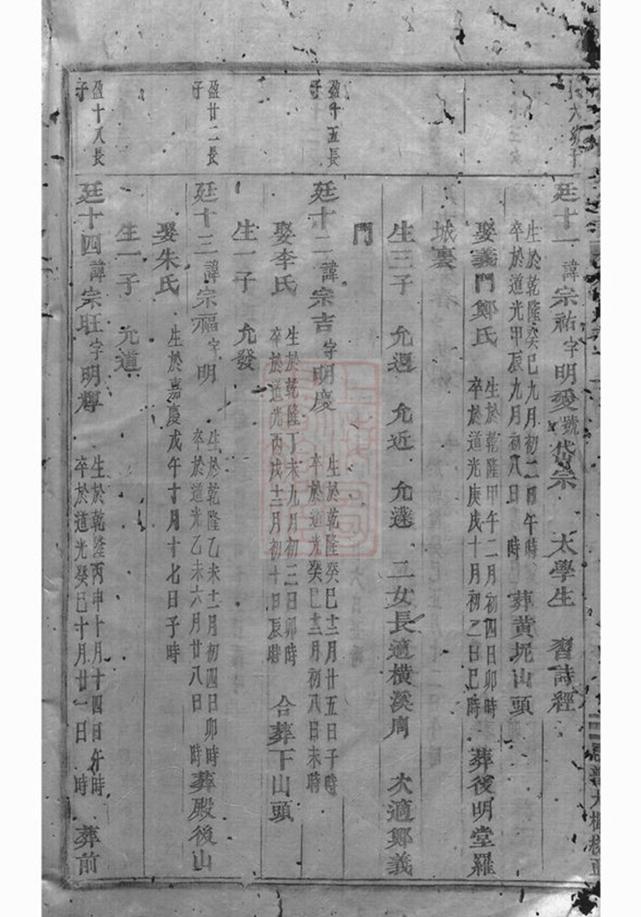 廷十一諱宗祐字明愛號岱宗　太學生　習詩經
生於乾隆癸巳九月初二日午時
卒於道光甲辰九月初八日　時　葬黃坭山頭
娶義門鄭氏　生於乾隆甲午二月初四日卯時
卒於道光庚戌十月初二日巳時　葬後明堂羅
城裏
生三子　允遇　允近　允達　二女長適橫溪周　次適鄭義
門
盈十五長
子
廷十二諱宗吉字明慶　生於乾隆癸巳十二月廿五日子時
卒於道光癸巳十二月初八日未時
娶李氏　生於乾隆丁未九月初二日卯時
卒於道光丙戌十二月初十日辰時　合葬下山頭
生一子　允發
盈廿二長
子
廷十三諱宗福字明　生於乾隆乙未十二月初四日卯時
卒於道光乙未六月廿八日　時葬殿後山
娶朱氏　生於嘉慶戊午十月十七日子時
生一子　允道
盈十八長
子
廷十四諱宗旺字明輝　生於乾隆丙申十月十四日午時
卒於道光癸巳十月廿一日　時　葬前